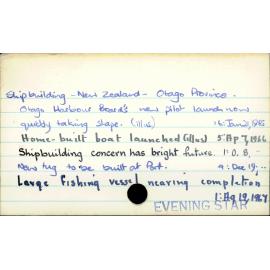 Shipbuilding - New Zealand - Otago Province.
Otago Harbour Board's new pilot launch now
quickly taking shape. (illus) 16: Jan 21, 1965
Home-built boat launched (illus) 5: Ap 7, 1966
Shipbuilding concern has bright future. 1: O. 8, -
New tug to be built at Port. 9: Dec 19, -
Large fishing vessel nearing completion
1: Ag 19, 1967
EVENING STAR